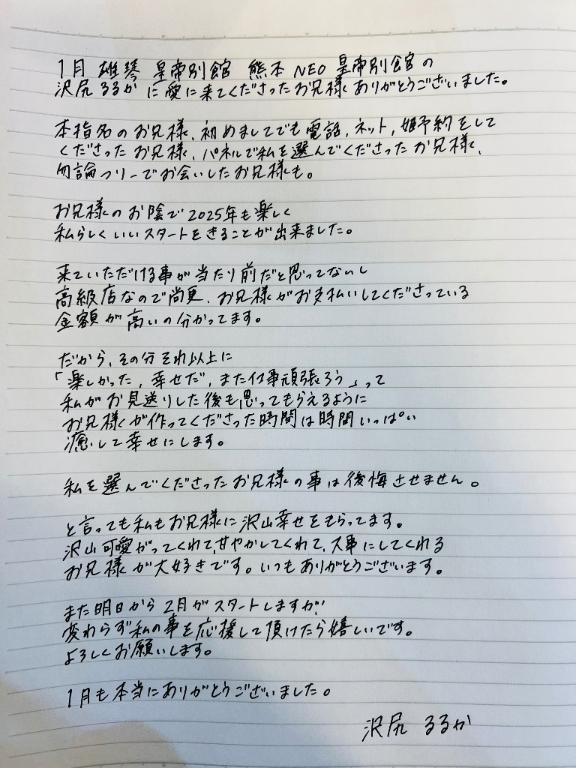 1月 雄琴 皇帝別館 熊本NEO皇帝別館の
沢尻るるかに愛に来てくださったお兄様ありがとうございました。
本指名のお兄様、初めましてでも電話、ネット、姫予約をして
くださったお兄様、パネルで私を選んでくださったお兄様、
勿論フリーでお会いしたお兄様も。
お兄様のお陰で2025年も楽しく
私らしくいいスタートをきることが出来ました。
来ていただける事が当たり前だと思ってないし
高級店なので尚更、お兄様がお支払いしてくださっている
金額が高いの分かってます。
だから、その分それ以上に
「楽しかった、幸せだ、また仕事頑張ろう」って
私がお見送りした後も思ってもらえるように
お兄様が作ってくださった時間は時間いっぱい
癒して幸せにします。
私を選んでくださったお兄様の事は後悔させません。
と言っても私もお兄様に沢山幸せをもらってます。
沢山可愛がってくれて、甘やかしてくれて、大事にしてくれる
お兄様が大好きです。いつもありがとうございます。
また明日から2月がスタートしますが
変わらず私の事を応援して頂けたら嬉しいです。
よろしくお願いします。
1月も本当にありがとうございました。
沢尻 るるか